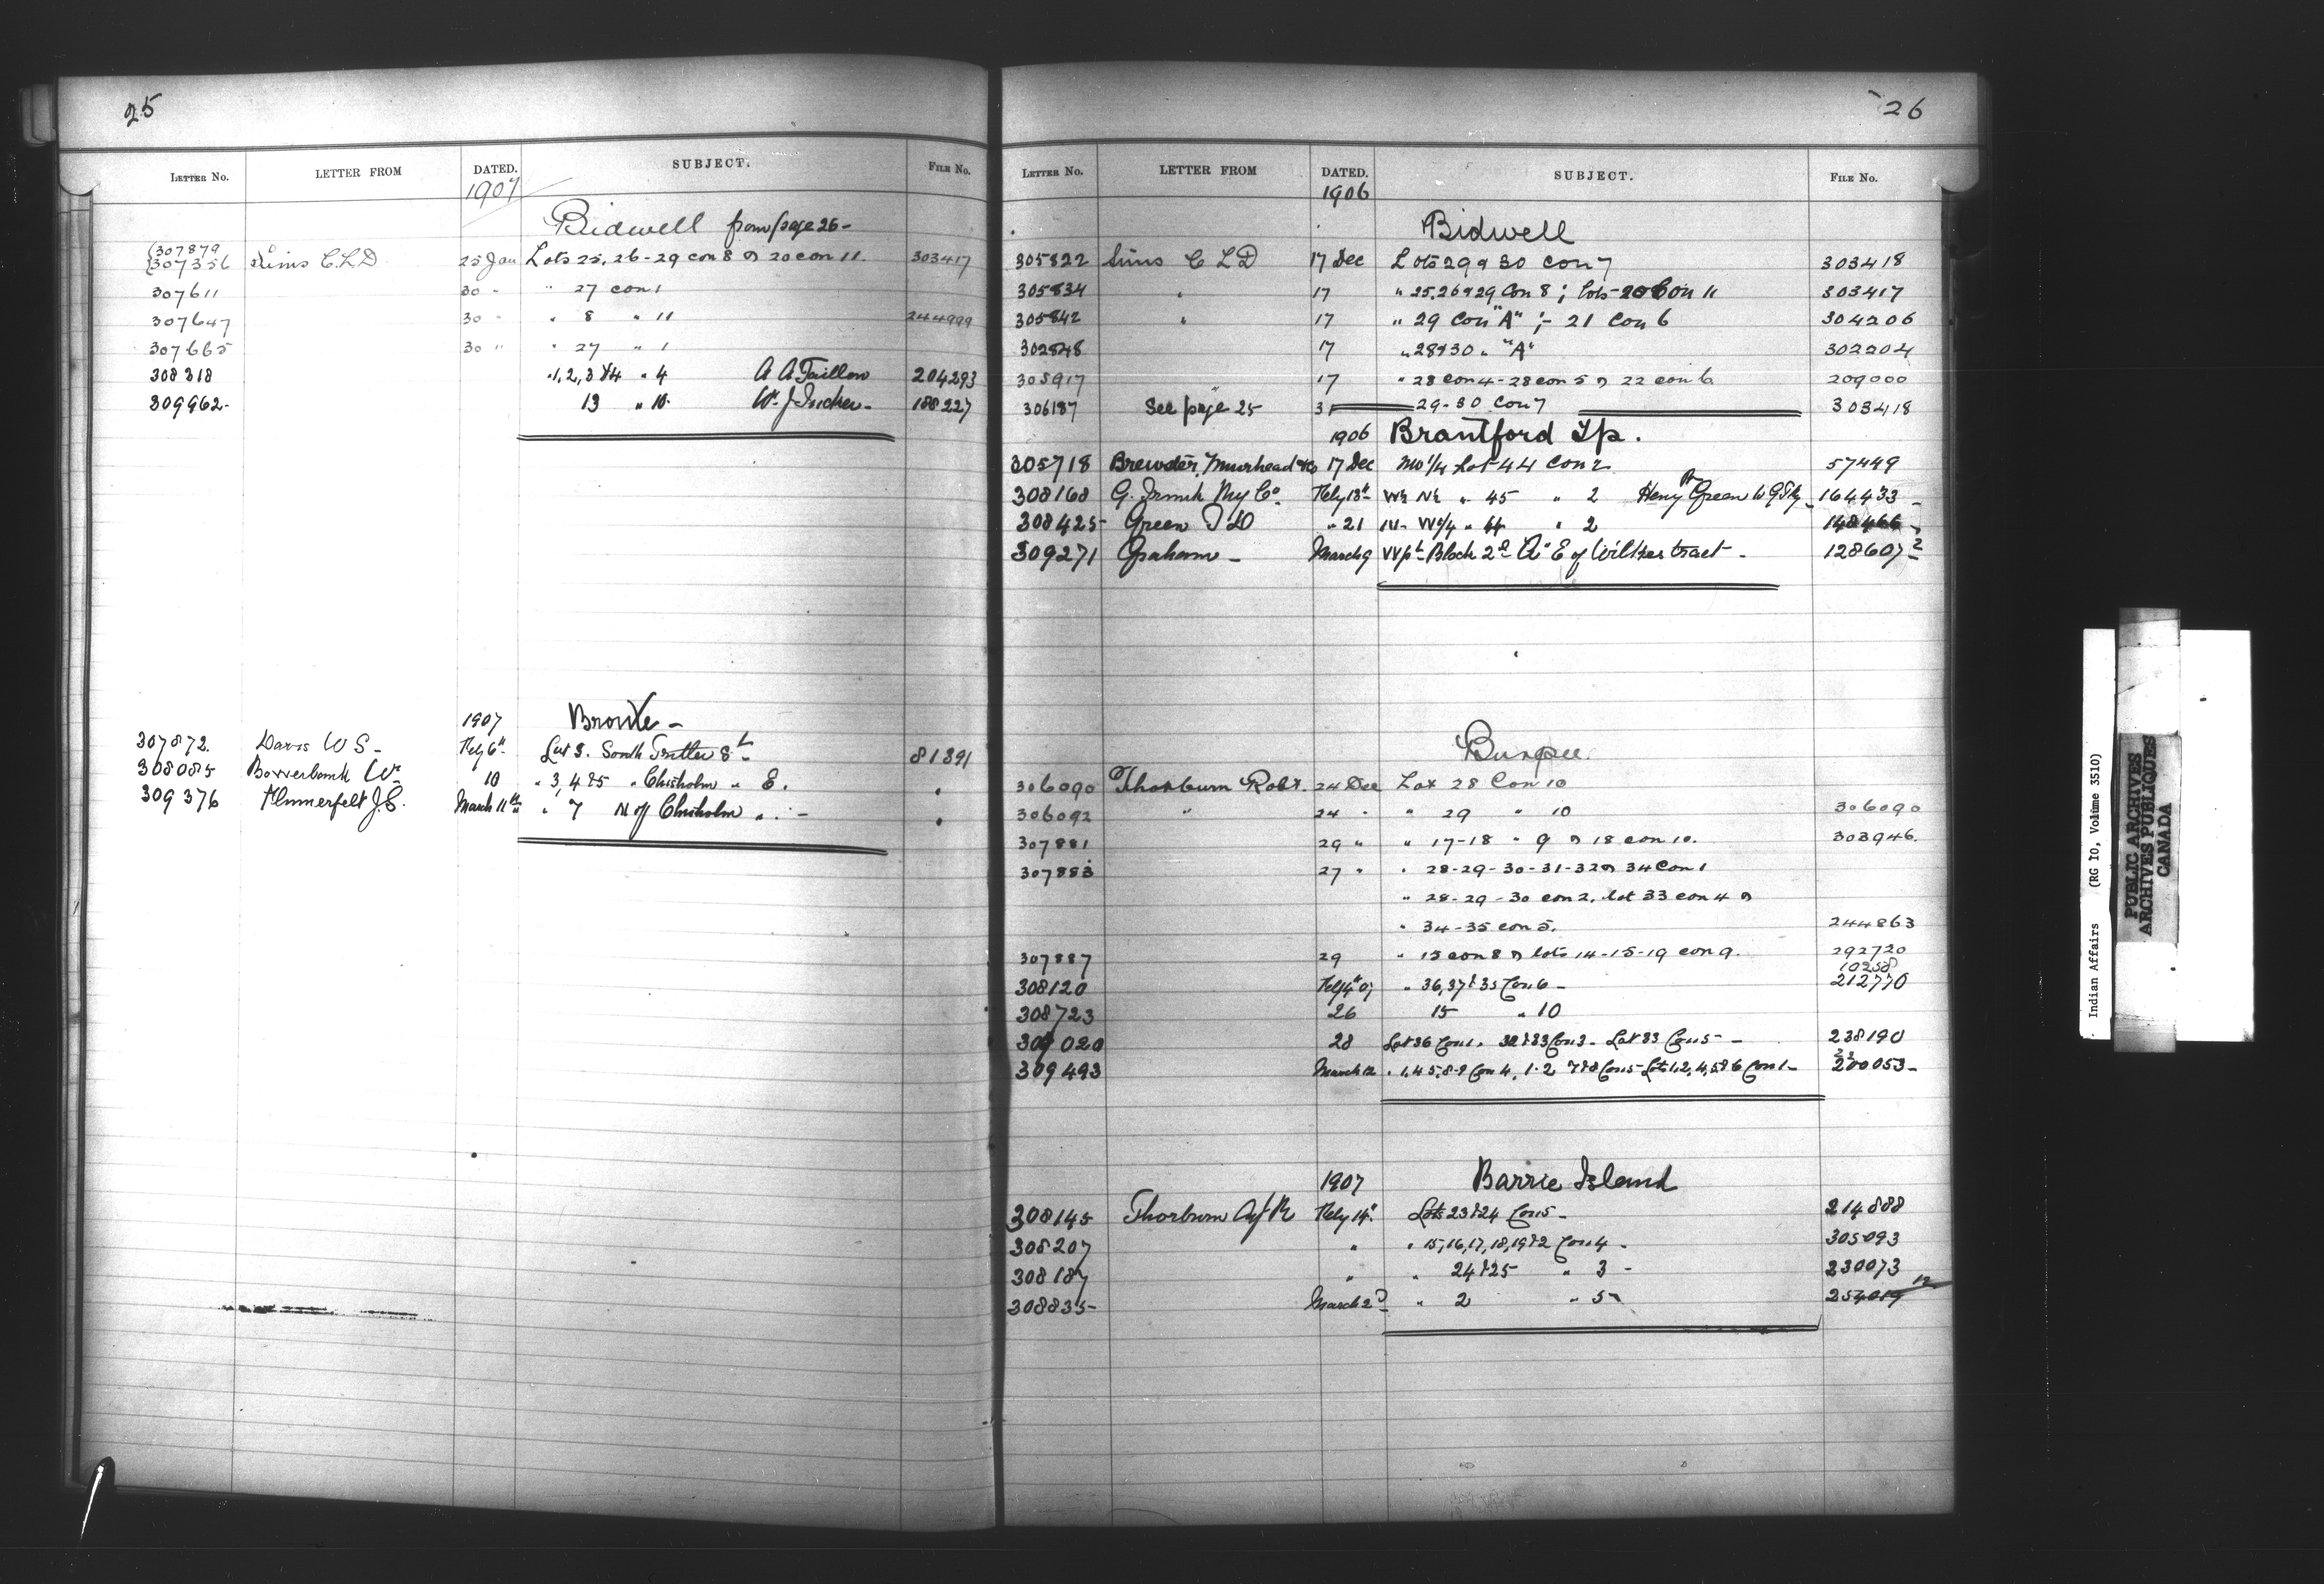 25
LETTER No. LETTER FROM DATED. SUBJECT. FILE No.
1907
Bidwell from page 26-
307879
307356 Sims C.L.D 25 Jan Lots 25, 26-29 con 8 & 20 con 11. 303417
307611 30 " " 27 con 1
307647 30 " " 8 " 11 244999
307665 30 " " 27 " 1
308318 " 1, 2, 3 & 4 " 4 A A 204293
309962- 13 " 10 W. J. Tucker- 188227
1907 Bronte -
307872. Davis W S - Feby 6th Lot 3. South 8 1391
308085 Bowerbank Wm 10 " 3, 4 & 5 " Chisholm " E. "
309376 J.C. March 11th " 7 N of Chisholm " " - "
26
LETTER No. LETTER FROM DATED. SUBJECT. FILE No.
1906
Bidwell
305822 Sims C L D 17 Dec Lots 29 & 30 Con 7 303418
305834 " 17 " 25, 26 & 29 Con 8 ; lots 20 Con 11 303417
305842 " 17 " 29 Con "A" ;- 21 Con 6 304206
302848 17 " 28 & 30 " "A" 302204
305917 " 17 " 28 con 4 - 28 con 5 & 22 con 6 209000
306187 See page 25 31 29-30 Con 7 303418
1906 Brantford Tp.
305718 Brewster, Muirhead & Co 17 Dec NW 1/4 Lot 44 Con 2 57449
308168 G. Ry Co. Feby 13th W½ N½ " 45 " 2 Henry Green 164433
308425- Green " 21 N- W 1/4 " 44 " 2 148466
309271 Graham - March 9 W pt Block 2 E of Wilkes tract - 128607 ?
Burpee.
306090 Thorburn Robt. 24 Dec Lot 28 Con 10
306092 " 24 " " 29 " 10 306090
307881 29 " " 17-18 " 9 & 18 con 10. 303946.
307883 27 " " 28-29-30-31-32 & 34 Con 1
" 28-29-30 con 2, lot 33 con 4 &
" 34-35 con 5. 244863
307887 29 " 15 con 8 & lots 14-15-19 con 9. 292720
10258
308120 Feby 4th 07 " 36, 37 & 35 Con 6 - 212770
308723 26 15 " 10
309020 28 Lot 36 Con 1. 32 & 33 Con 3 - Lot 33 Con 5 - 238190
309493 March 12 " 1, 4 5, 8-9 Con 4, 1-2 7 & 8 Con 5 - Lots 1, 2, 4, 5 & 6 Con 1 - 200053-
1907 Barrie Island
308145 Thorburn Agt R Feby 14th Lots 23 & 24 Con 5 - 214888
308207 " " 15, 16, 17, 18, 19 & 2 Con 4 - 305093
308187 " " 24 & 25 " 3 - 230073
308835- March 2d " 2 " 5 254019 12
Indian Affairs (RG 10, Volume 3510)
PUBLIC ARCHIVES
ARCHIVES PUBLIQUES
CANADA